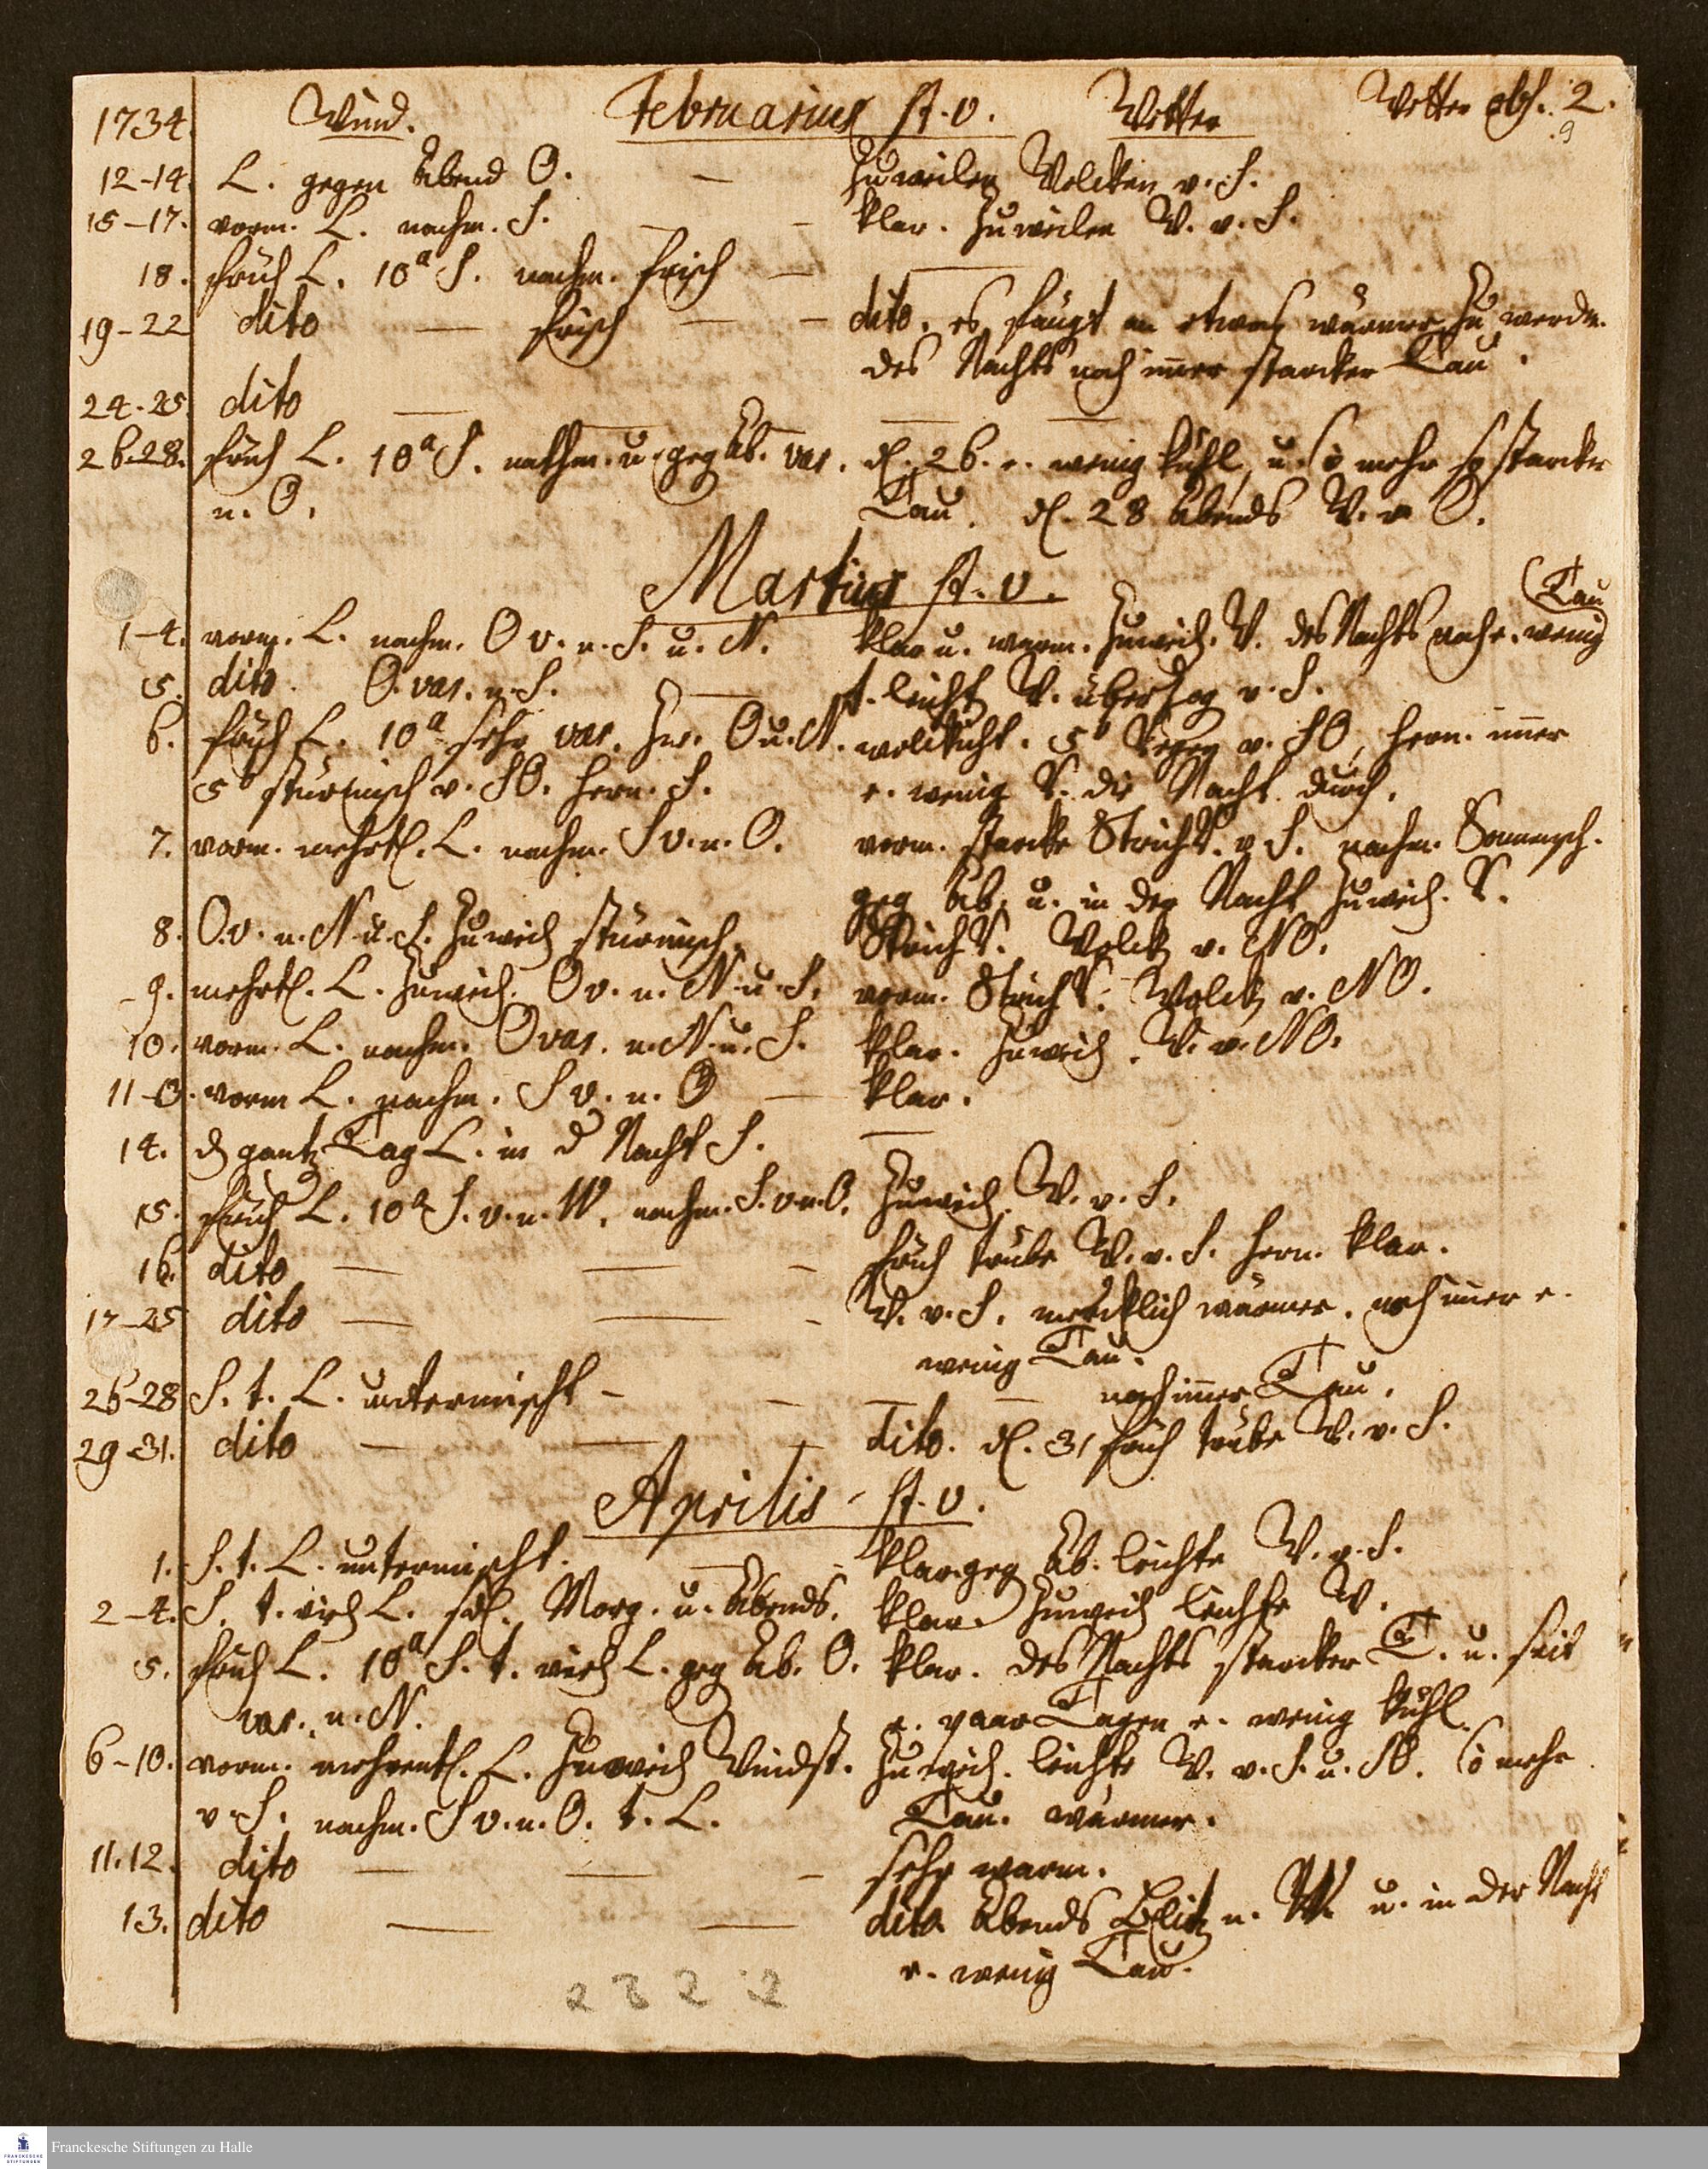 1734. Wind. Februarius st. v. Wetter Wetter obs. 2.
9
12-14. L. gegen Abend O. — zuweilen Wolcken v. S.
15-17. vorm. L. nachm. S. — - klar. zuweilen W. v. S.
18. früh L. 10a S. nachm. frisch — —
19-22 dito — frisch — - dito. es fängt an etwas wärmer zu werden.
des Nachts noch imer starcker Tau.
24-25 dito — — — —
26-28. früh L. 10a S. nachm. u. geg Ab. var. d. 26. e. wenig kühl, u. mehr so starcker
n. O. Tau. d. 28 Abends W. v O.
Martius st. v.
(Tau
1-4. vorm. L. nachm. O v. n. S. u. N. klar u. warm. zuweil. W. des Nachts noch e. wenig
5. dito. O. var. n. S. — t. leicht W. überzog v. S.
6. früh L. 10a sehr var. zw. O u. N. wolckicht. 5p Regen v. SO, hern. imer
5p stürmisch v. SO. hern. S. e. wenig R. die Nacht durch.
7. vorm. mehrtl. L. nachm. S v. n. O. vorm. starcke Strich R. v S. nachm. Sonnensch.
geg Ab. u. in der Nacht zuweil. R.
8. O. v. n. N u. S. zuweil stürmisch. Strich R. Wolck v. NO.
9. mehrtl. L. zuweil. O v. n. N u. S. vorm. Strich R. Wolck v. NO.
10. vorm. L. nachm. O var. n. N. u. S. klar. zuweil. W. v. NO.
11-13. vorm L. nachm. S v. n. O — klar.
14. d gantz Tag L. in d Nacht S. —
15. früh L. 10a S. v. n. W. nachm. S. v. n. O. zuweil. W. v. S.
16. dito — — - früh trübe W. v. S. hern. klar.
17-25 dito — — - W. v. S. mercklich wärmer. noch imer e.
wenig Tau.
26-28 S. t. L. untermischt - - — — noch imer Tau.
29-31. dito — — - dito. d. 31 früh trübe W. v. S.
Aprilis - st. v.
1. S. t. L. untermischt. — - klar. geg Ab. leichte W. v. S.
2-4. S. t. viel L. sdl. Morg. u. Abends. klar. zuweil leichte W.
5. früh L. 10a S. t. viel L. geg Ab. O. klar. des Nachts starcker T. u. seit
var. n. N. e. paar Tagen e. wenig kühl.
6-10. vorm. mehrentl. L. zuweil Windst. zuweil. leichte W. v. S. u. SO. mehr
v. S. nachm. S v. n. O. t. L. Tau. wärmer.
11.12. dito — — - sehr warm.
13. dito — — dito Abends Blitz n. W. u. in der Nacht
e. wenig Tau.
2322
Franckesche Stiftungen zu Halle
FRANCKESCHE STIFTUNGEN